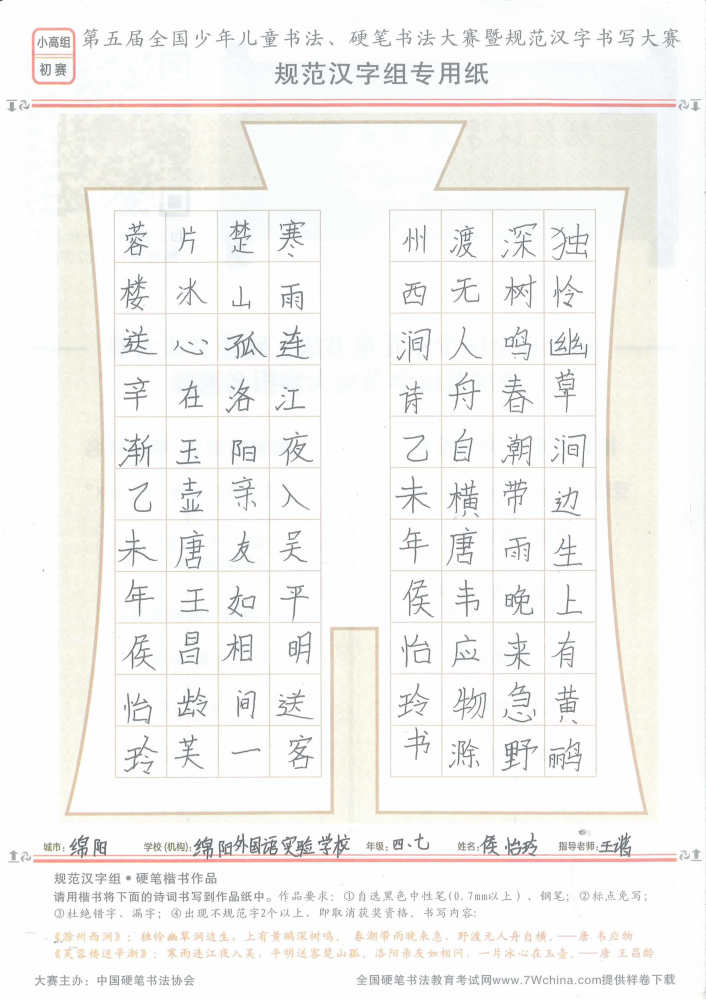 小高组
初赛
第五届全国少年儿童书法、硬笔书法大赛暨规范汉字书写大赛
规范汉字组专用纸
独怜幽草涧边生上有黄鹂
深树鸣春潮带雨晚来急野
渡无人舟自横唐韦应物滁
州西涧诗乙未年侯怡玲书
寒雨连江夜入吴平明送客
楚山孤洛阳亲友如相间一
片冰心在玉壶唐王昌龄芙
蓉楼送辛渐乙未年侯怡玲
城市：绵阳 学校(机构)：绵阳外国语实验学校 年级：四、七 姓名：侯怡玲 指导老师：王
规范汉字组●硬笔楷书作品
请用楷书将下面的诗词书写到作品纸中。作品要求：①自选黑色中性笔(0.7mm以上)、钢笔；②标点免写；
③杜绝错字、漏字；④出现不规范字2个以上，即取消获奖资格。书写内容：
《滁州西涧》：独怜幽草涧边生，上有黄鹂深树鸣。 春潮带雨晚来急，野渡无人舟自横。——唐 韦应物
《芙蓉楼送辛渐》：寒雨连江夜入吴，平明送客楚山孤。洛阳亲友如相问，一片冰心在玉壶。——唐 王昌龄
大赛主办：中国硬笔书法协会 全国硬笔书法教育考试网www.7Wchina.com提供样卷下载